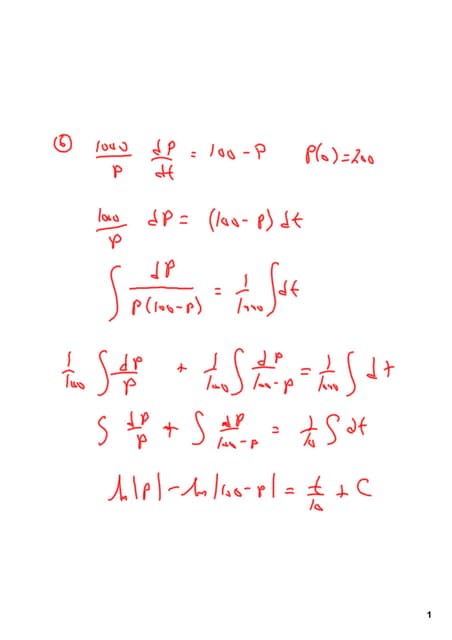 ⑥ 1000/P dP/dt = 100 - P P(0) = 200
1000/P dP = (100 - P) dt
∫ dP/P(100-P) = 1/1000 ∫ dt
1/100 ∫ dP/P + 1/100 ∫ dP/100-P = 1/1000 ∫ dt
∫ dP/P + ∫ dP/100-P = 1/10 ∫ dt
ln|P| - ln|100-P| = t/10 + C
1